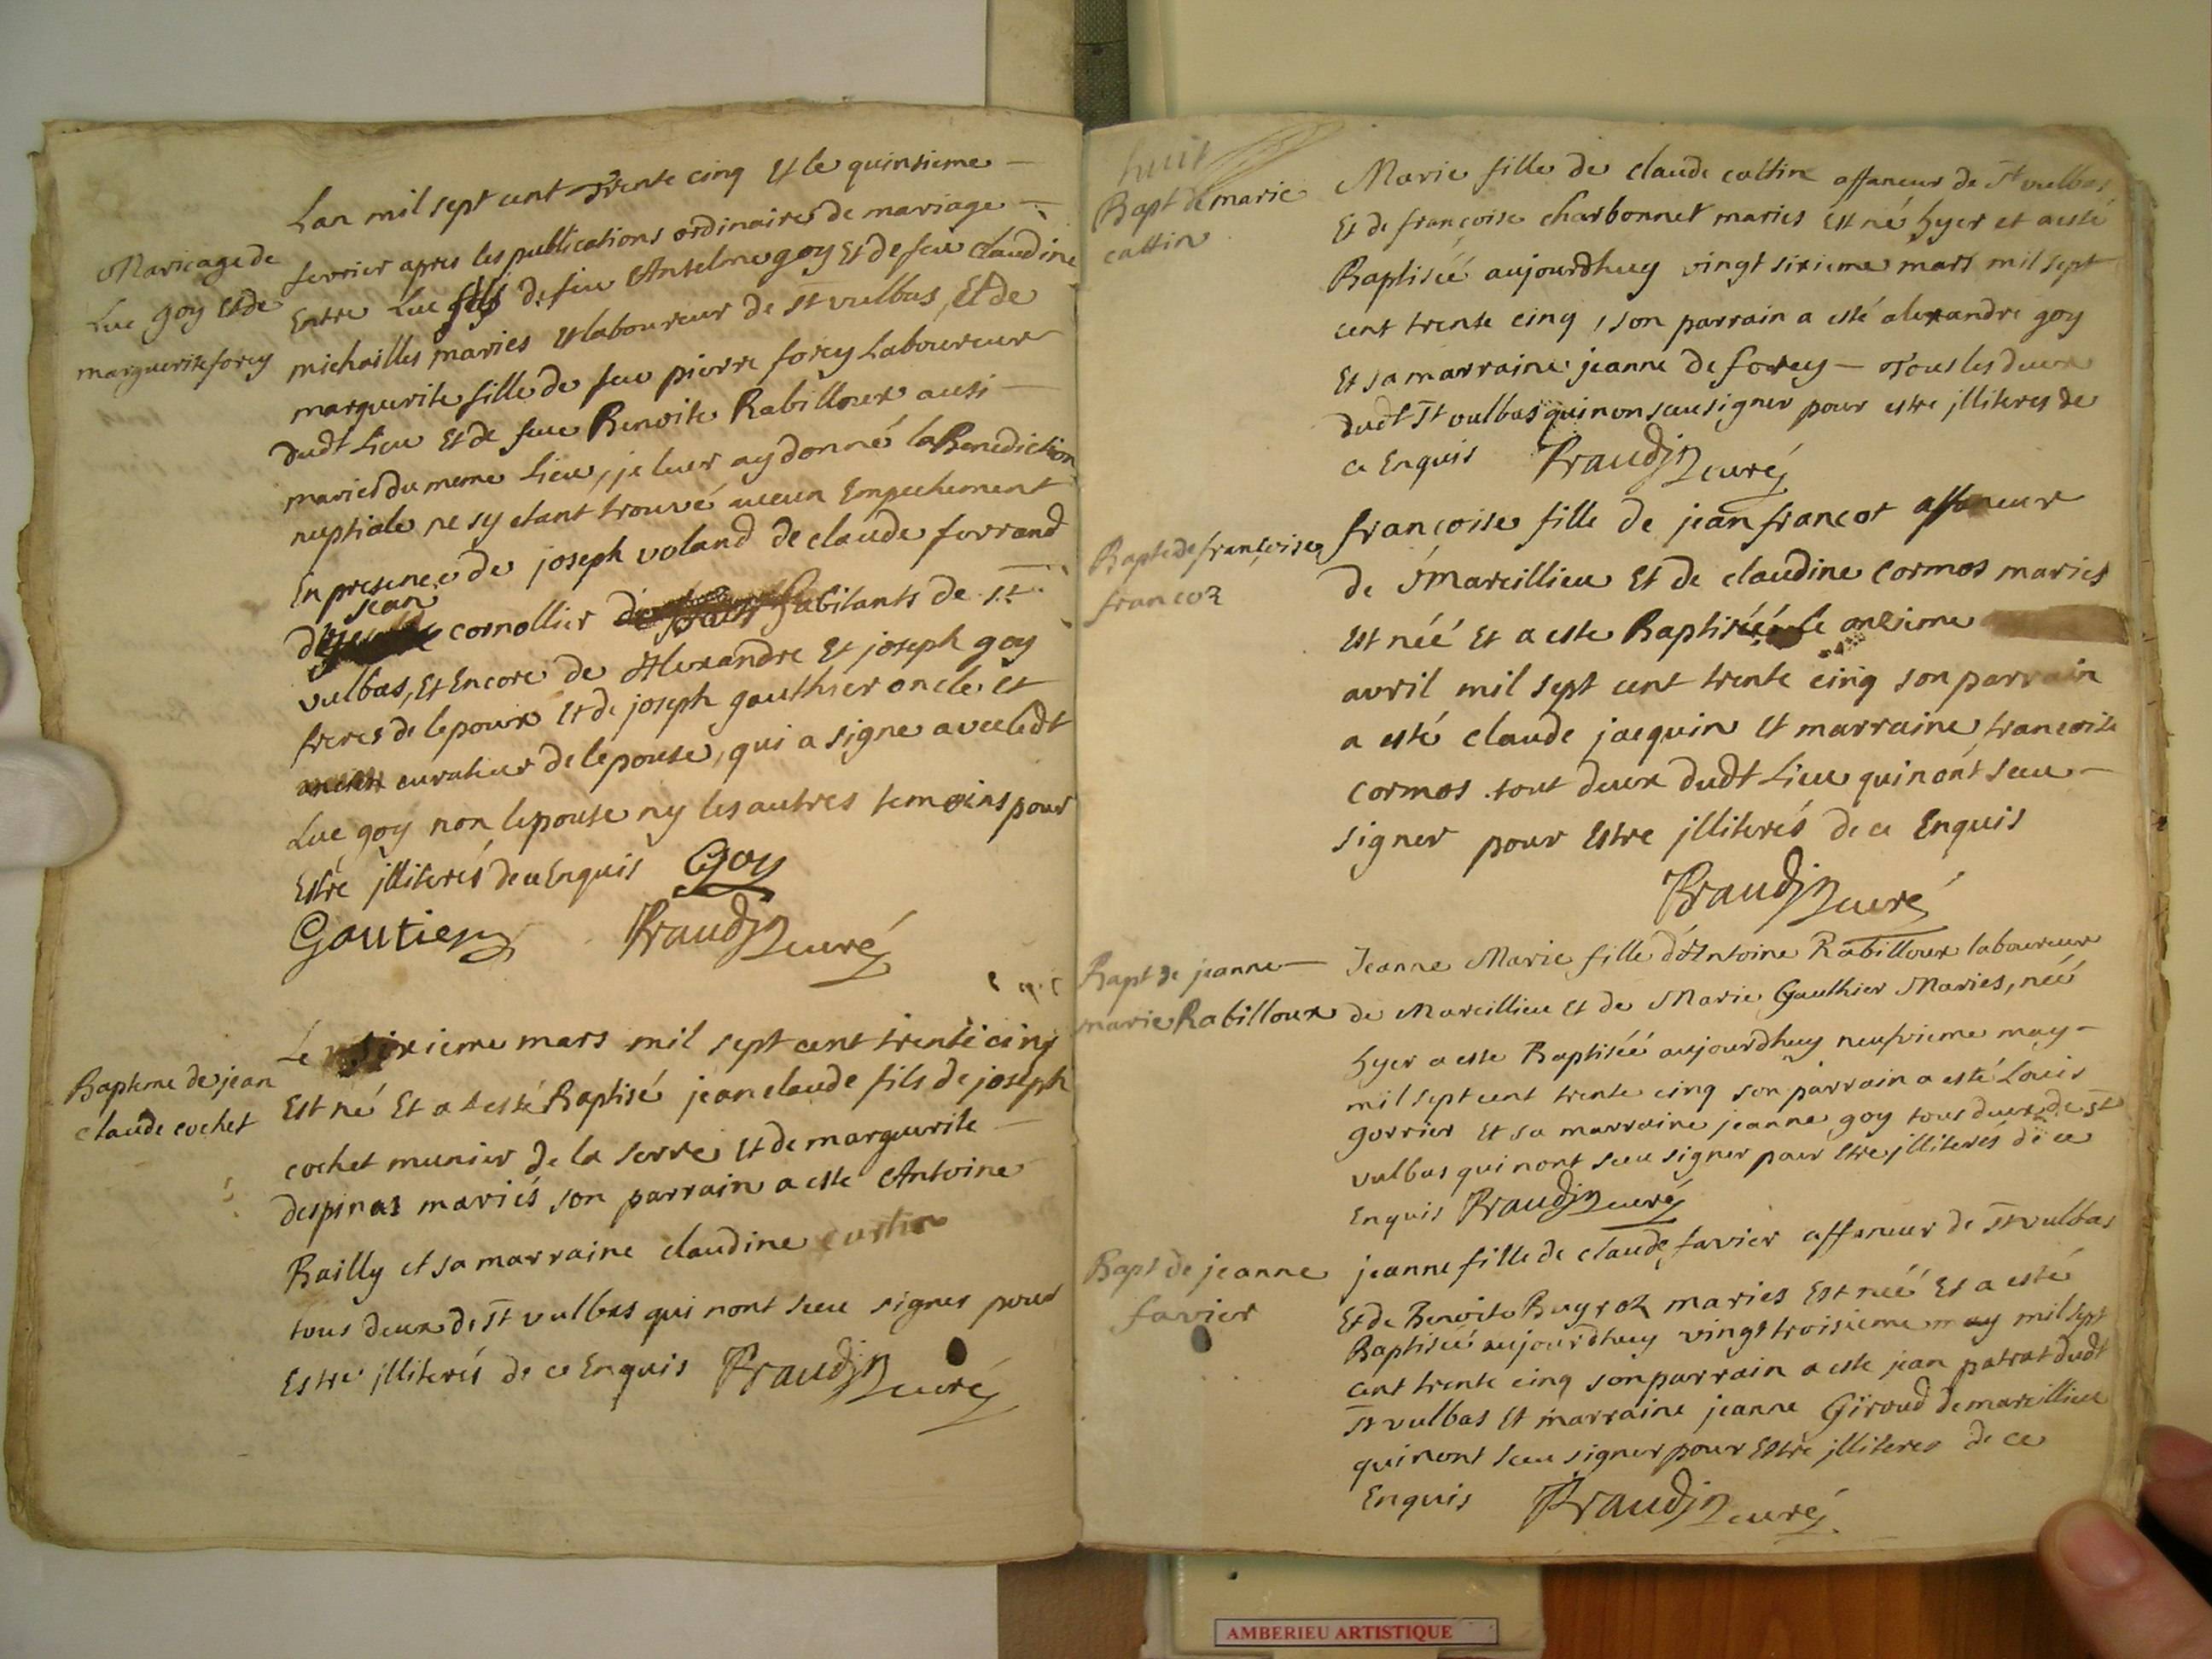 Mariage de
Luc goy et de
marguerite forey
Lan mil sept cent trente cinq et le quinsieme
fevrier apres les publications ordinaires de mariage
Entre Luc fils de feu Anselme goy et de feue claudine
michailles mariés et laboureur de St vulbas, et de
marguerite fille de feu pierre forey laboureur
dudt lieu et de feue Benoite Rabilloux ausi
mariés du meme lieu, je leur ay donné la Benediction
nuptiale ne sy etant trouvé aucun Empechement
En presence de joseph voland de claude forrand
jean
cornollier habitants de St
vulbas, et Encore de Alexandre et joseph goy
freres de lepoux et de joseph gauthier oncle et
curateur de lepouse, qui a signe avec ledt
Luc goy non lepouse ny les autres temoins pour
Estre jlliterés de ce Enquis Goy
Gautier Braudin curé
Bapteme de jean
claude cochet
Le sixieme mars mil sept cent trente cinq
Est né Et a esté Baptisé jean claude fils de joseph
cochet munier de la serre et de marguerite
despinas mariés son parrain a este Antoine
Bailly et sa marraine claudine
tous deux de St vulbas qui nont sceu signer pour
Estre jlliterés de ce Enquis Braudin curé
huit
Bapt de marie
cattin
Marie fille de claude cattin affaneur de St vulbas
Et de françoise charbonnet maries Est né hyer et a esté
Baptiséé aujourdhuy vingt sixieme mars mil sept
cent trente cinq, son parrain a esté alexandre goy
Et sa marraine jeanne de forey — Tous les deux
dudt St vulbas qui non sceu signer pour estre jlliteres de
ce Enquis Braudin curé
Bapt de françoise
francoz
françoise fille de jean francoz affaneur
de Marcillieu Et de claudine cormos maries
Est néé Et a este Baptiséé le onzieme
avril mil sept cent trente cinq son parrain
a esté claude jacquin et marraine françoise
cormos tout deux dudt Lieu qui nont sceu
signer pour Estre jlliterés de ce Enquis
Braudin curé
Bapt de jeanne
marie Rabilloux
Jeanne Marie fille dAntoine Rabilloux laboureur
de Marcillieu et de Marie Gauthier Maries, néé
hyer a este Baptiséé aujourdhuy neufvieme may
mil sept cent trente cinq son parrain a esté Louis
gorrier et sa marraine jeanne goy tous deux de St
vulbas qui nont sceu signer pour Estre jlliterés de ce
Enquis Braudin curé
Bapt de jeanne
favier
jeanne fille de claude favier affaneur de St vulbas
Et de Benoite Buyroz maries Est néé Et a esté
Baptiséé aujourdhuy vingt troisieme may mil sept
cent trente cinq son parrain a este jean patrat dudt
St vulbas et marraine jeanne Giroud de marcillieu
qui nont sceu signer pour Estre jlliteres de ce
Enquis Braudin curé
AMBERIEU ARTISTIQUE